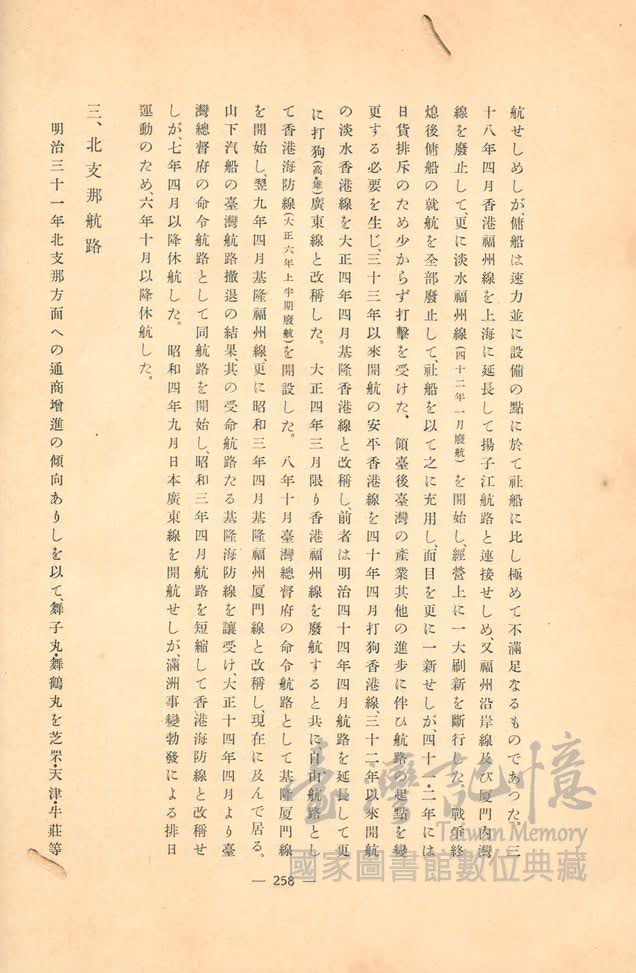 航せしめしが、傭船は速力並に設備の點に於て社船に比し極めて不滿足なるものであつた。三
十八年四月香港福州線を上海に延長して揚子江航路と連接せしめ、又福州沿岸線及び厦門內灣
線を廢止して、更に淡水福州線(四十二年一月廢航)を開始し、經營上に一大刷新を斷行した。戰爭終
熄後傭船の就航を全部廢止して、社船を以て之に充用し、面目を更に一新せしが、四十一・二年には
日貨排斥のため少からず打擊を受けた。領臺後臺灣の產業其他の進步に伴ひ航路の起點を變
更する必要を生じ、三十三年以來開航の安平香港線を四十年四月打狗香港線、三十二年以來開航
の淡水香港線を大正四年四月基隆香港線と改稱し、前者は明治四十四年四月航路を延長して更
に打狗(高雄)廣東線と改稱した。大正四年三月限り香港福州線を廢航すると共に自由航路とし
て香港海防線(大正六年上半期廢航)を開設した。八年十月臺灣總督府の命令航路として基隆厦門線
を開始し、翌九年四月基隆福州線、更に昭和三年四月基隆福州厦門線と改稱し、現在に及んで居る。
山下汽船の臺灣航路撤退の結果、其の受命航路たる基隆海防線を讓受け、大正十四年四月より臺
灣總督府の命令航路として同航路を開始し、昭和三年四月航路を短縮して香港海防線と改稱せ
しが、七年四月以降休航した。昭和四年九月日本廣東線を開航せしが、滿洲事變勃發による排日
運動のため、六年十月以降休航した。
三、北支那航路
明治三十一年北支那方面への通商增進の傾向ありしを以て、舞子丸・舞鶴丸を芝罘・天津・牛莊等
— 258 —
臺灣記憶
Taiwan Memory
國家圖書館數位典藏